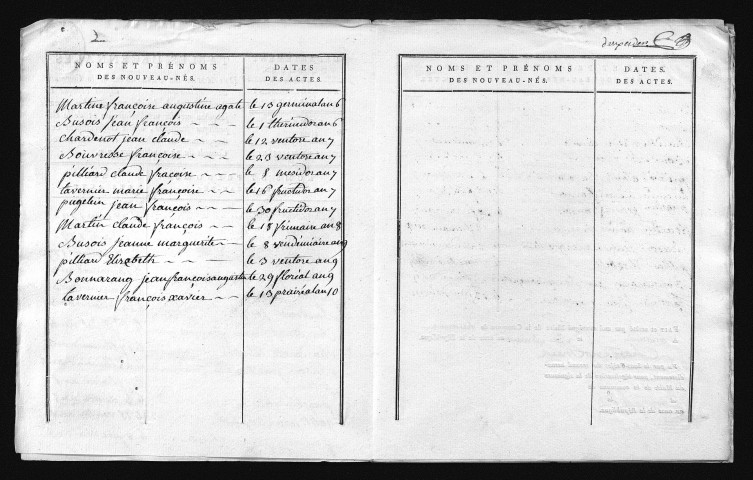 2
NOMS ET PRÉNOMS
DES NOUVEAU-NÉS.
DATES
DES ACTES.
Martin françoise augustine agate le 13 germinal an 6
Busois jean françois le 1 thermidor an 6
chardenot jean claude le 12 ventose an 7
Bouvresse françoise le 23 ventose an 7
pilliard claude fracoise le 8 mesidor an 7
tavernier marie françoise le 16 fructidor an 7
pugelin jean françois le 30 fructidor an 7
Martin claude françois le 18 frimaire an 8
Busois jeanne marguerite le 8 vendémiaire an 9
pilliard Elizabeth le 3 ventose an 9
Bonnarang jean françois augustin le 29 floréal an 9
tavernier françois xavier le 13 prairéal an 10
NOMS ET PRÉNOMS
DES NOUVEAU-NÉS.
DATES.
DES ACTES.